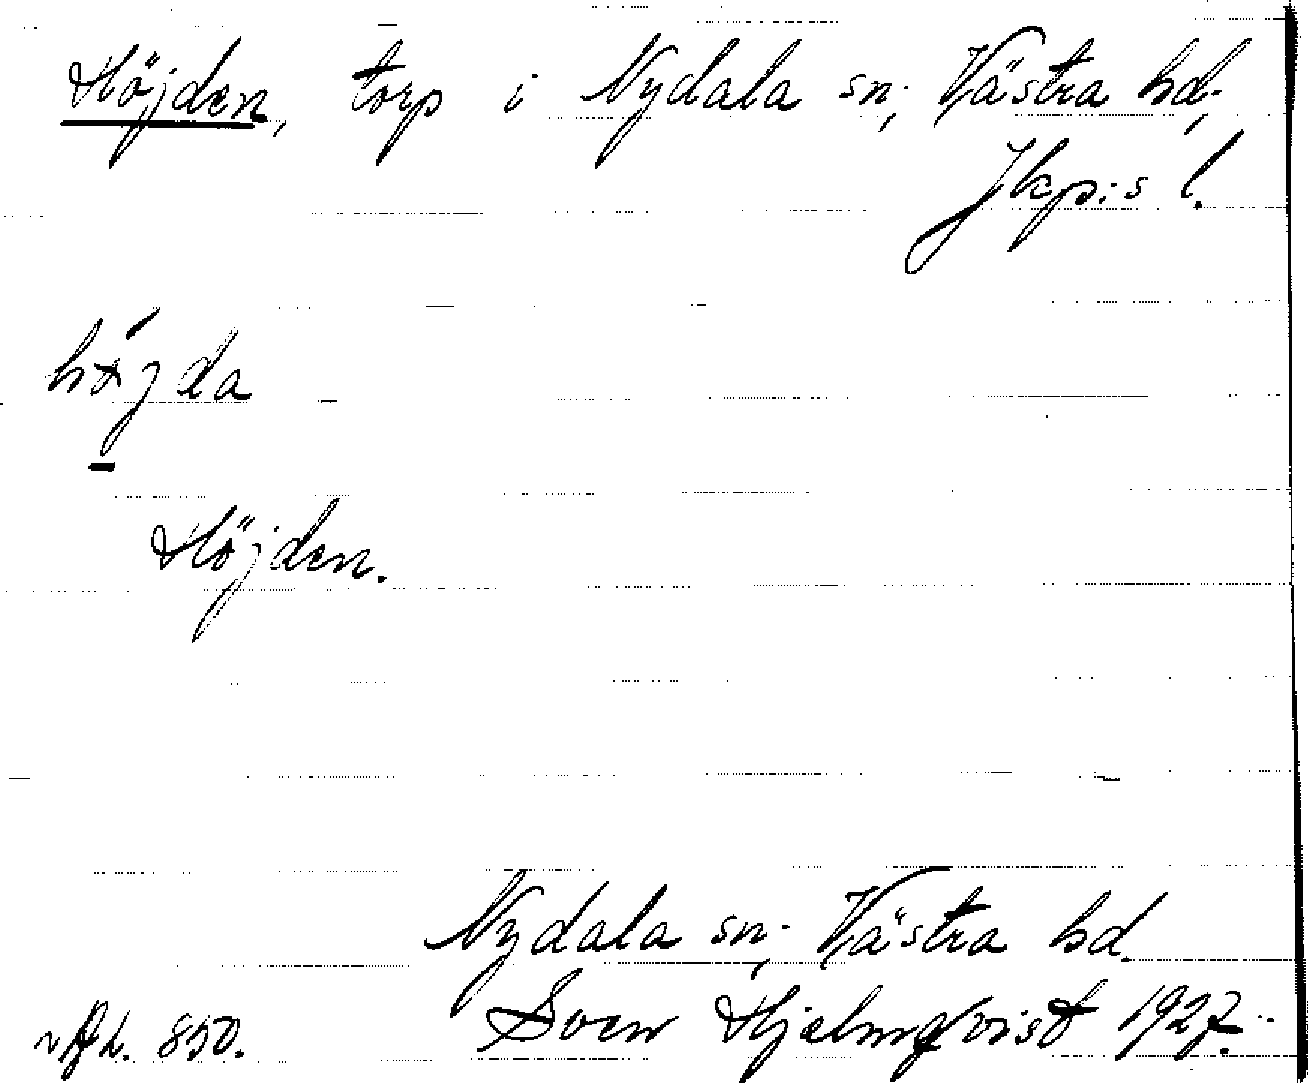 Höjden, torp i Nydala sn, Västra hd,
Jkp:s l.
Höjden.
Nydala sn, Västra hd.
850. Sven Hjelmqvist 1927.